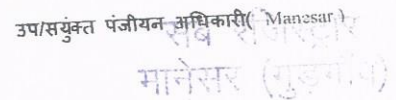 उप/सयुंक्त पंजीयन अधिकारी( Manesar )
सब रजिस्ट्रार
मानेसर (गुड़गाँव)